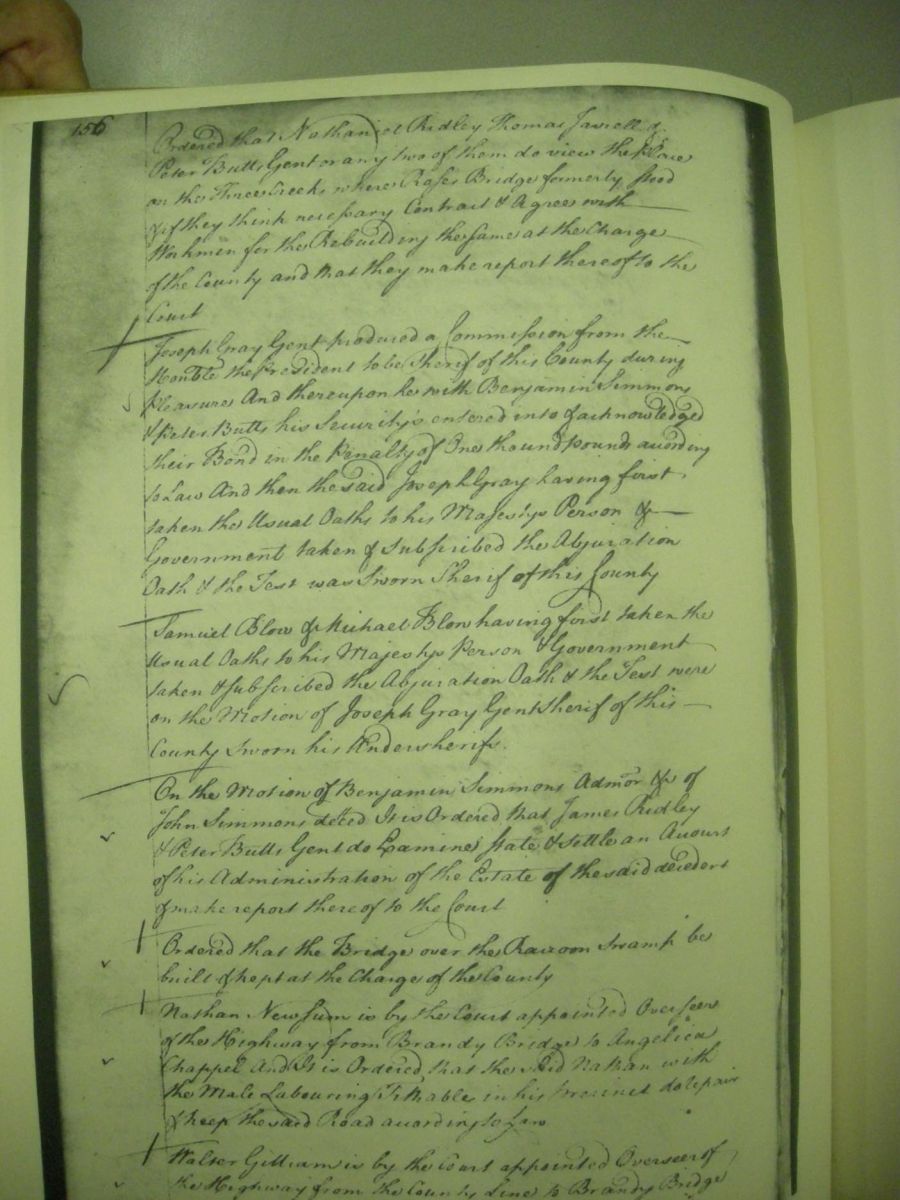 156
Ordered that Nathaniel Ridley Thomas Jarrell &
Peter Butts Gent or any two of them do view the Place
on the Three Creeks where Roses Bridge formerly stood
& if they think necessary Contract & Agree with
Workmen for the Rebuilding the same at the Charge
of the County and that they make report thereof to the
Court
Joseph Gray Gent produced a Commission from the
Honble the President to be Sherif of this County during
Pleasure And thereupon he with Benjamin Simmons
& Peter Butts his Security's entered into & acknowledged
their Bond in the Penalty of One thound pounds according
to Law And then the said Joseph Gray having first
taken the Usual Oaths to his Majestys Person &
Government taken & subscribed the Abjuration
Oath & the Test was Sworn Sherif of this County
Samuel Blow & Michael Blow having first taken the
Usual Oaths to his Majestys Person & Government
taken & subscribed the Abjuration Oath & the Test were
on the Motion of Joseph Gray Gent Sherif of this
County Sworn his Undersherifs.
On the Motion of Benjamin Simmons Admor &c of
John Simmons deced It is Ordered that James Ridley
& Peter Butts Gent do Examine state & settle an Account
of his Administration of the Estate of the said decedent
& make report thereof to the Court
Ordered that the Bridge over the Raccoon Swamp be
built & kept at the Charge of the County
Nathan Newsum is by the Court appointed Overseer
of the Highway from Brandy Bridge to Angelica
Chappel And It is Ordered that the said Nathan with
the Male Labouring Tithables in his Precinct do repair
& keep the said Road according to Law
Walter Gilliam is by the Court appointed Overseer of
the Highway from the County Line to Brandy Bridge